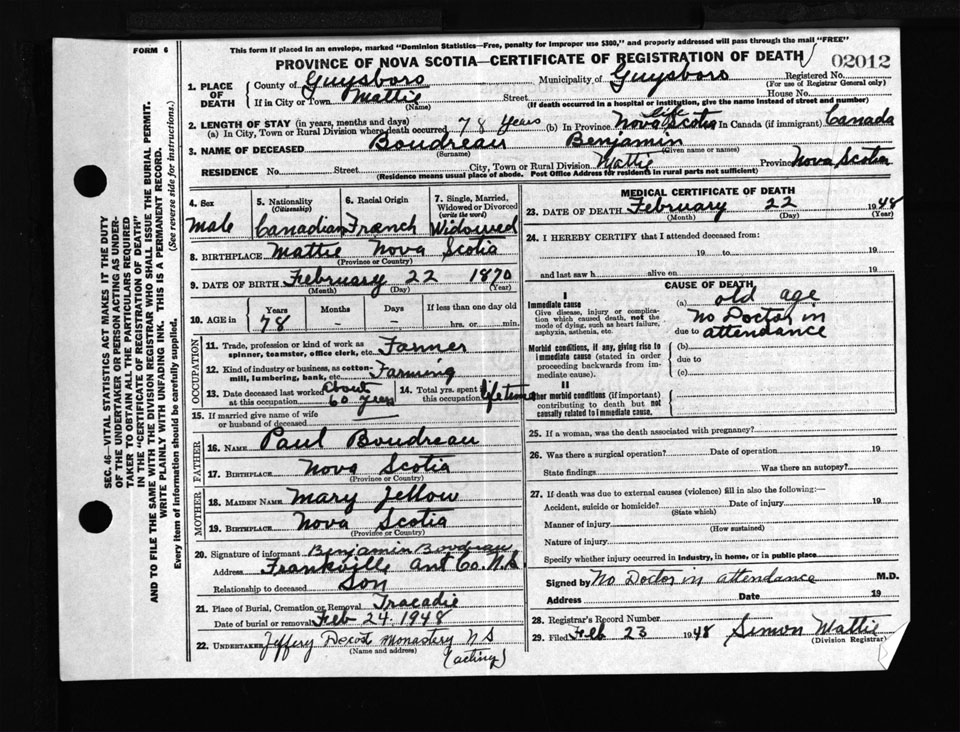 This form if placed in an envelope, marked "Dominion Statistics—Free, penalty for improper use $300," and properly addressed will pass through the mail "FREE"
FORM 6
PROVINCE OF NOVA SCOTIA—CERTIFICATE OF REGISTRATION OF DEATH
02012
1. PLACE OF DEATH
County of Guysboro Municipality of Guysboro Registered No.
(For use of Registrar General only)
If in City or Town Mattie Street House No.
(Name) (If death occurred in a hospital or institution, give the name instead of street and number)
2. LENGTH OF STAY (in years, months and days)
(a) In City, Town or Rural Division where death occurred 78 years (b) In Province life Nova Scotia In Canada (if immigrant) Canada
3. NAME OF DECEASED Boudreau Benjamin
(Surname) (Given name or names)
RESIDENCE No. Street City, Town or Rural Division Mattie Province Nova Scotia
(Residence means usual place of abode. Post Office Address for residents in rural parts not sufficient)
4. Sex Male
5. Nationality (Citizenship) Canadian
6. Racial Origin French
7. Single, Married, Widowed or Divorced (write the word) Widowed
8. BIRTHPLACE Mattie Nova Scotia
(Province or Country)
9. DATE OF BIRTH February 22 1870
(Month) (Day) (Year)
10. AGE in Years 78 Months – Days – If less than one day old hrs. or min.
OCCUPATION
11. Trade, profession or kind of work as spinner, teamster, office clerk, etc. Farmer
12. Kind of industry or business, as cotton-mill, lumbering, bank, etc. Farming
13. Date deceased last worked at this occupation About 60 years
14. Total yrs. spent in this occupation lifetime
15. If married give name of wife or husband of deceased
FATHER
16. NAME Paul Boudreau
17. BIRTHPLACE Nova Scotia
(Province or Country)
MOTHER
18. MAIDEN NAME Mary Jellow
19. BIRTHPLACE Nova Scotia
(Province or Country)
20. Signature of informant Benjamin Boudreau
Address Frankville Ant Co. N.S.
Relationship to deceased Son
21. Place of Burial, Cremation or Removal Tracadie
Date of burial or removal Feb 24. 1948
22. UNDERTAKER Jeffery Decost Monastery N S
(Name and address) (acting)
MEDICAL CERTIFICATE OF DEATH
23. DATE OF DEATH February 22 1948
(Month) (Day) (Year)
24. I HEREBY CERTIFY that I attended deceased from:
19 to 19
and last saw h alive on 19
CAUSE OF DEATH
I
Immediate cause
Give disease, injury or complication which caused death, not the mode of dying, such as heart failure, asphyxia, asthenia, etc.
(a) old age
No Doctor in
due to attendance
Morbid conditions, if any, giving rise to immediate cause (stated in order proceeding backwards from immediate cause).
(b)
due to
(c)
II
Other morbid conditions (if important) contributing to death but not causally related to immediate cause.
25. If a woman, was the death associated with pregnancy?
26. Was there a surgical operation? Date of operation 19
State findings Was there an autopsy?
27. If death was due to external causes (violence) fill in also the following:—
Accident, suicide or homicide? Date of injury 19
(State which)
Manner of injury
(How sustained)
Nature of injury
Specify whether injury occurred in industry, in home, or in public place
Signed by No Doctor in attendance M.D.
Address Date 19
28. Registrar's Record Number
29. Filed Feb 23 1948 Simon Mattie
(Division Registrar)
SEC. 46—VITAL STATISTICS ACT MAKES IT THE DUTY
OF THE UNDERTAKER OR PERSON ACTING AS UNDER-
TAKER TO OBTAIN ALL THE PARTICULARS REQUIRED
IN THE "CERTIFICATE OF REGISTRATION OF DEATH"
AND TO FILE THE SAME WITH THE DIVISION REGISTRAR WHO SHALL ISSUE THE BURIAL PERMIT.
WRITE PLAINLY WITH UNFADING INK. THIS IS A PERMANENT RECORD.
Every item of information should be carefully supplied. (See reverse side for instructions.)